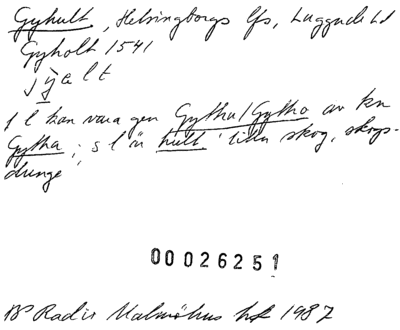 Gyhult, Helsingborgs lfs, Luggude hd
Gyholt 1541
jÿelt
f l kan vara gen Gythu/Gytho av kn
Gytha; s l är hult 'liten skog, skogs-
dunge'
00026251
BP Radis Malmöhus 1987